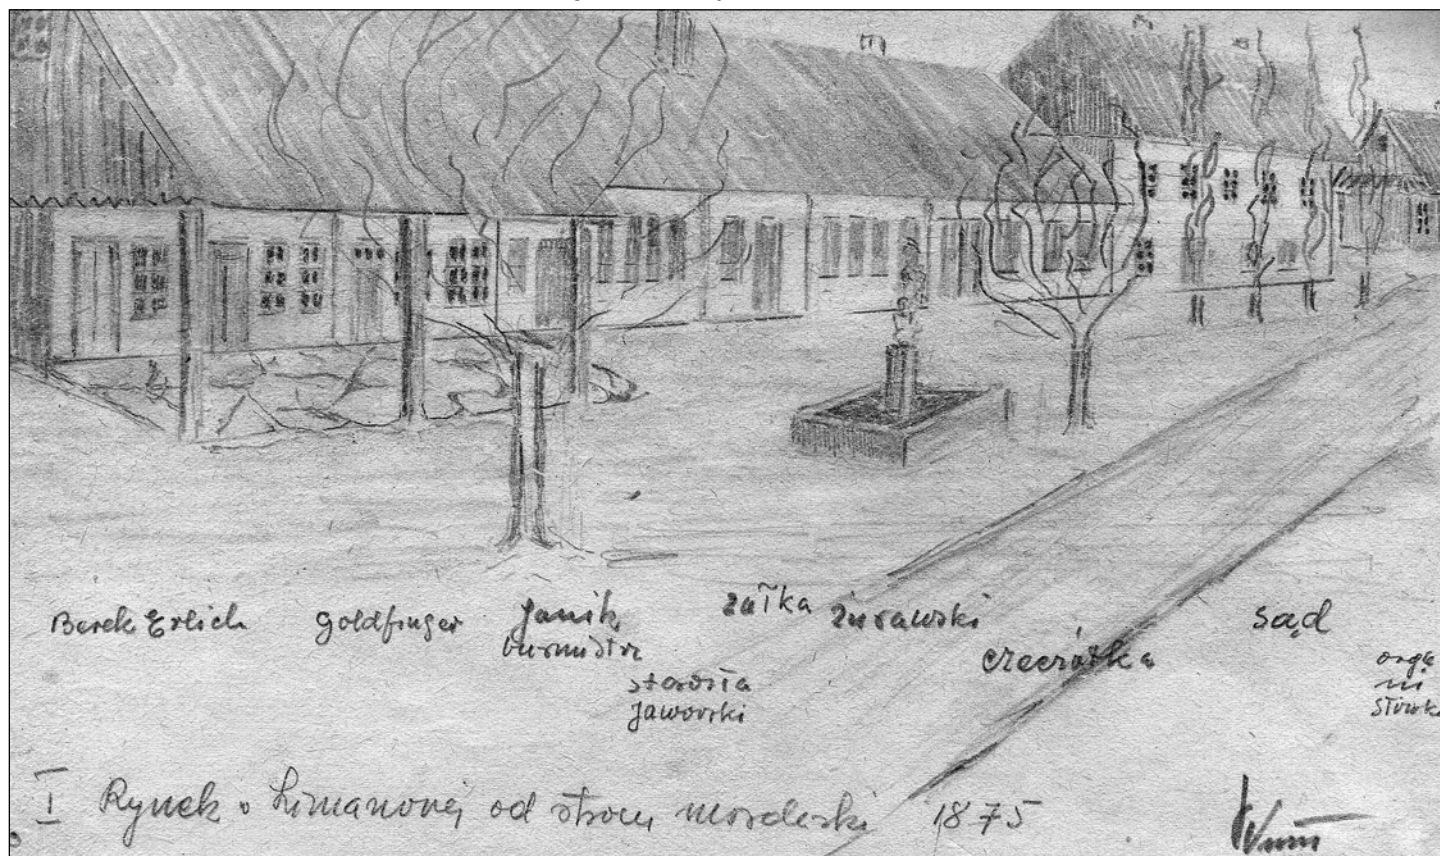 Berek Erlich
Goldfinger
Janik
burmistrz
starosta
Jaworski
załka
żurawski
czeczótka
sąd
orga
ni
stówk
I Rynek w Limanowej od strony mordarki 1875